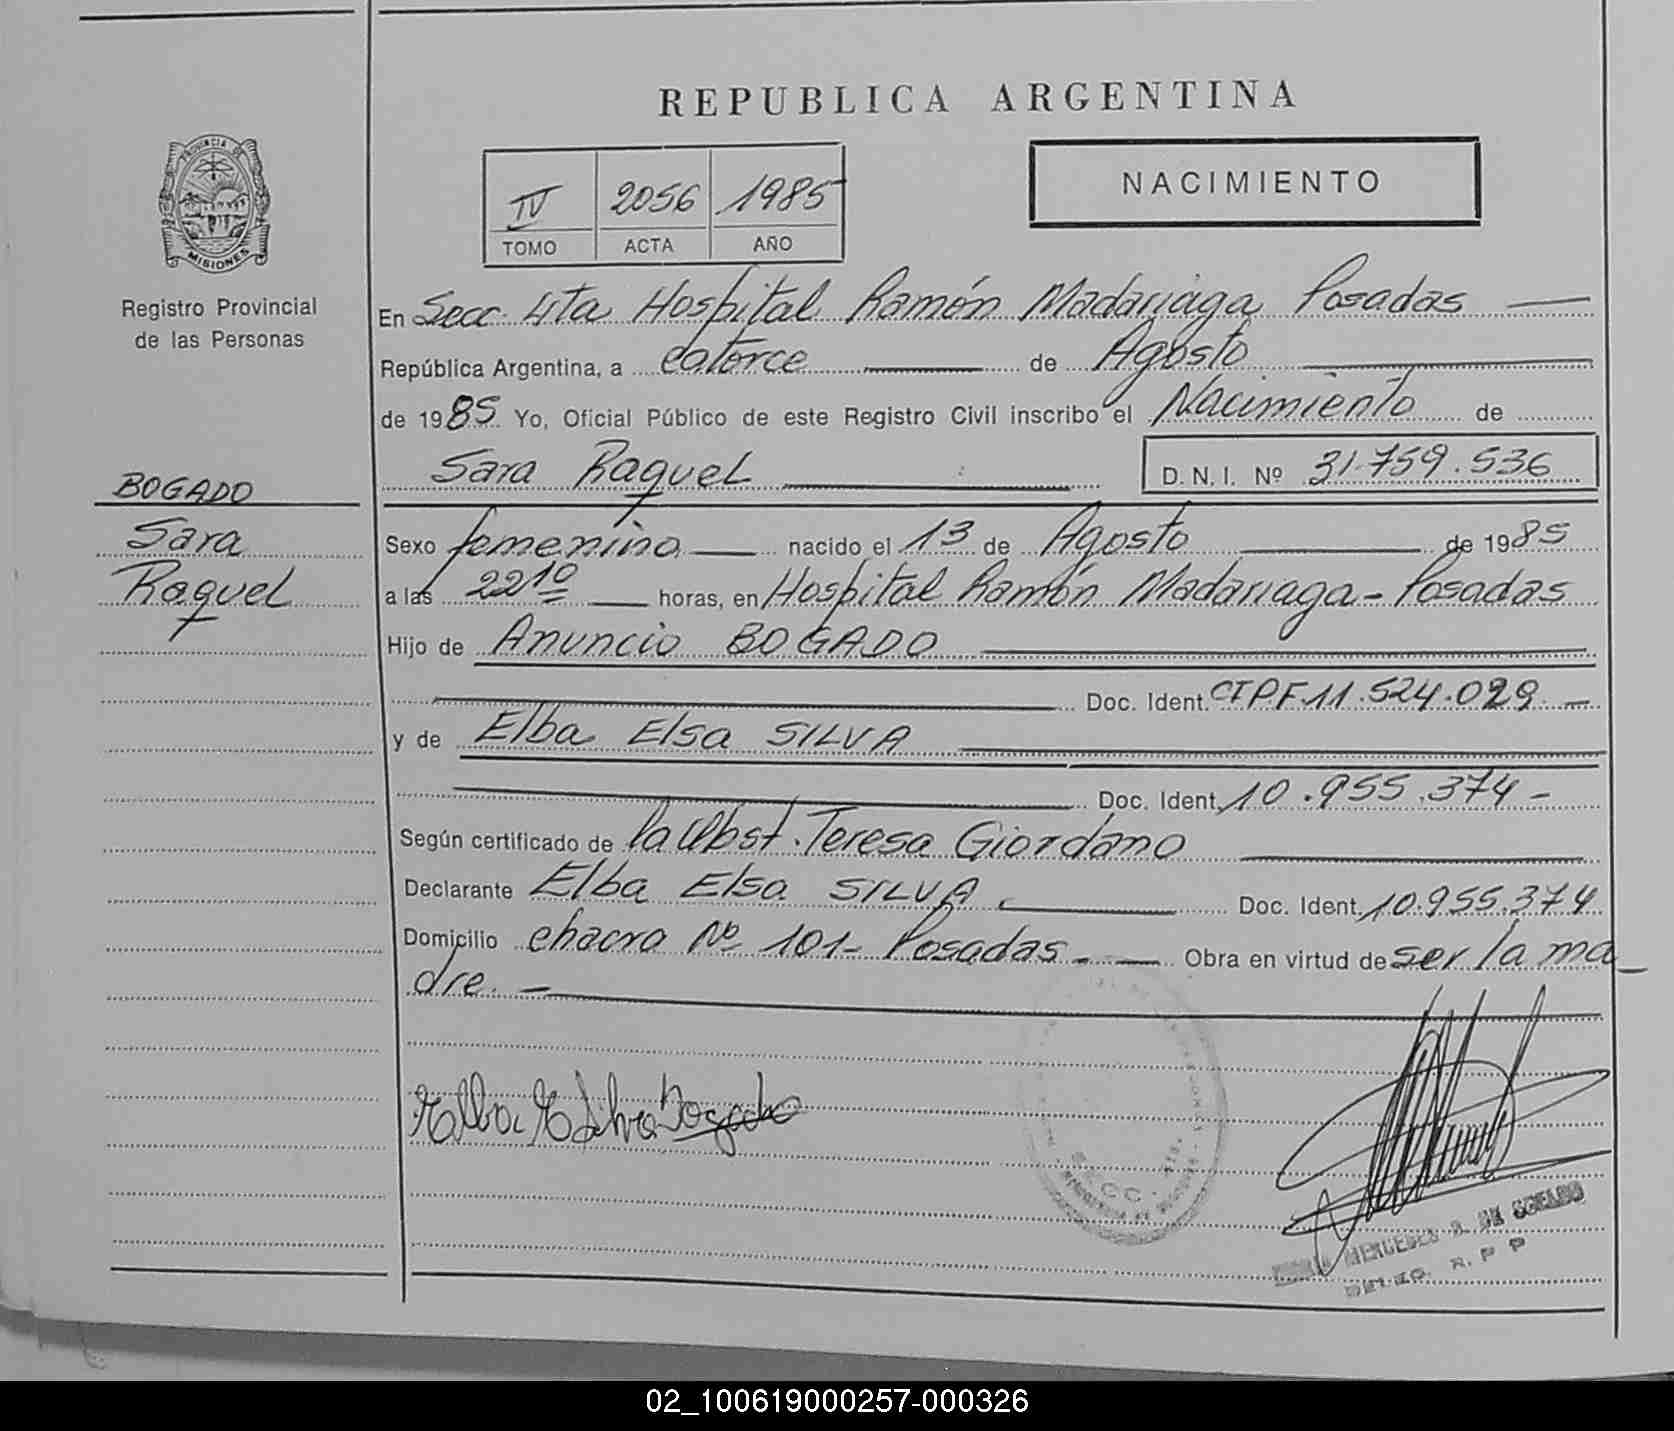 REPUBLICA ARGENTINA
PROVINCIA DE
MISIONES
Registro Provincial
de las Personas
IV 2056 1985
TOMO ACTA AÑO
NACIMIENTO
En Secc. 4ta Hospital Ramón Madariaga Posadas
República Argentina, a catorce de Agosto
de 1985 Yo, Oficial Público de este Registro Civil inscribo el Nacimiento de
Sara Raquel D. N. I. Nº 31.759.536
BOGADO
Sara
Raquel
Sexo femenino nacido el 13 de Agosto de 1985
a las 22 10 horas, en Hospital Ramón Madariaga - Posadas
Hijo de Anuncio BOGADO
Doc. Ident. CIPF. 11.524.029.-
y de Elba Elsa SILVA
Doc. Ident. 10.955.374-
Según certificado de la Obst. Teresa Giordano
Declarante Elba Elsa SILVA. Doc. Ident. 10.955.374
Domicilio chacra Nº 101- Posadas.- Obra en virtud de ser la ma
dre.-
Elba E Silva Bogado
SECC.
MERCEDES DE
DELEG. R. P P
02_100619000257-000326